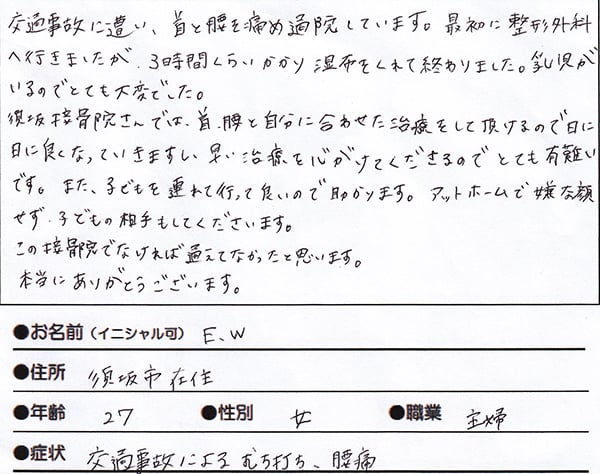 交通事故に遭い、首と腰を痛め通院しています。最初に整形外科
へ行きましたが、3時間くらいかかり湿布をくれて終わりました。乳児が
いるのでとても大変でした。
須坂接骨院さんでは、首、腰と自分に合わせた治療をして頂けるので日に
日に良くなっていきますし、早い治療を心がけてくださるのでとても有難い
です。また、子どもを連れて行って良いので助かります。アットホームで嫌な顔
せず、子どもの相手もしてくださいます。
この接骨院でなければ通えてなかったと思います。
本当にありがとうございます。
●お名前（イニシャル可） E.W
●住所 須坂市在住
●年齢 27 ●性別 女 ●職業 主婦
●症状 交通事故によるむち打ち、腰痛